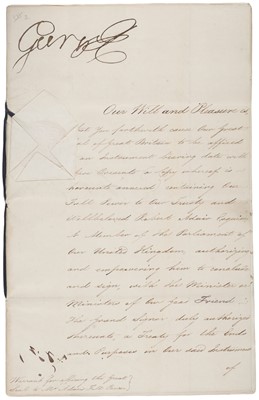 George R
Our Will and Pleasure is
that You forthwith cause Our Great
Seal of Great Britain to be affixed
to an Instrument bearing date with
these Presents a Copy whereof is
hereunto annexed containing Our
Full Power to Our Trusty and
Wellbeloved Robert Adair Esquire
a Member of the Parliament of
Our United Kingdom, authorizing
and empowering him to conclude
and sign, with the Minister or
Ministers of Our good Friend
The Grand Signor, duly authorized
thereunto, a Treaty for the Ends
and Purposes in Our said Instrument
of
Warrant for affixing the Great
Seal to Mr Adair's Full Power